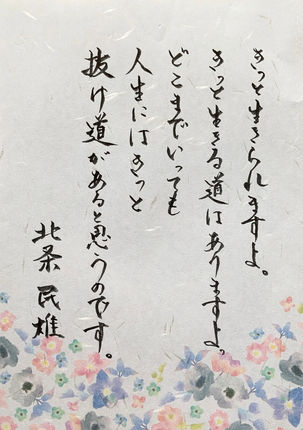 きっと生きられますよ。
きっと生きる道はありますよ。
どこまでいっても
人生にはきっと
抜け道があると思うのです。
北条民雄